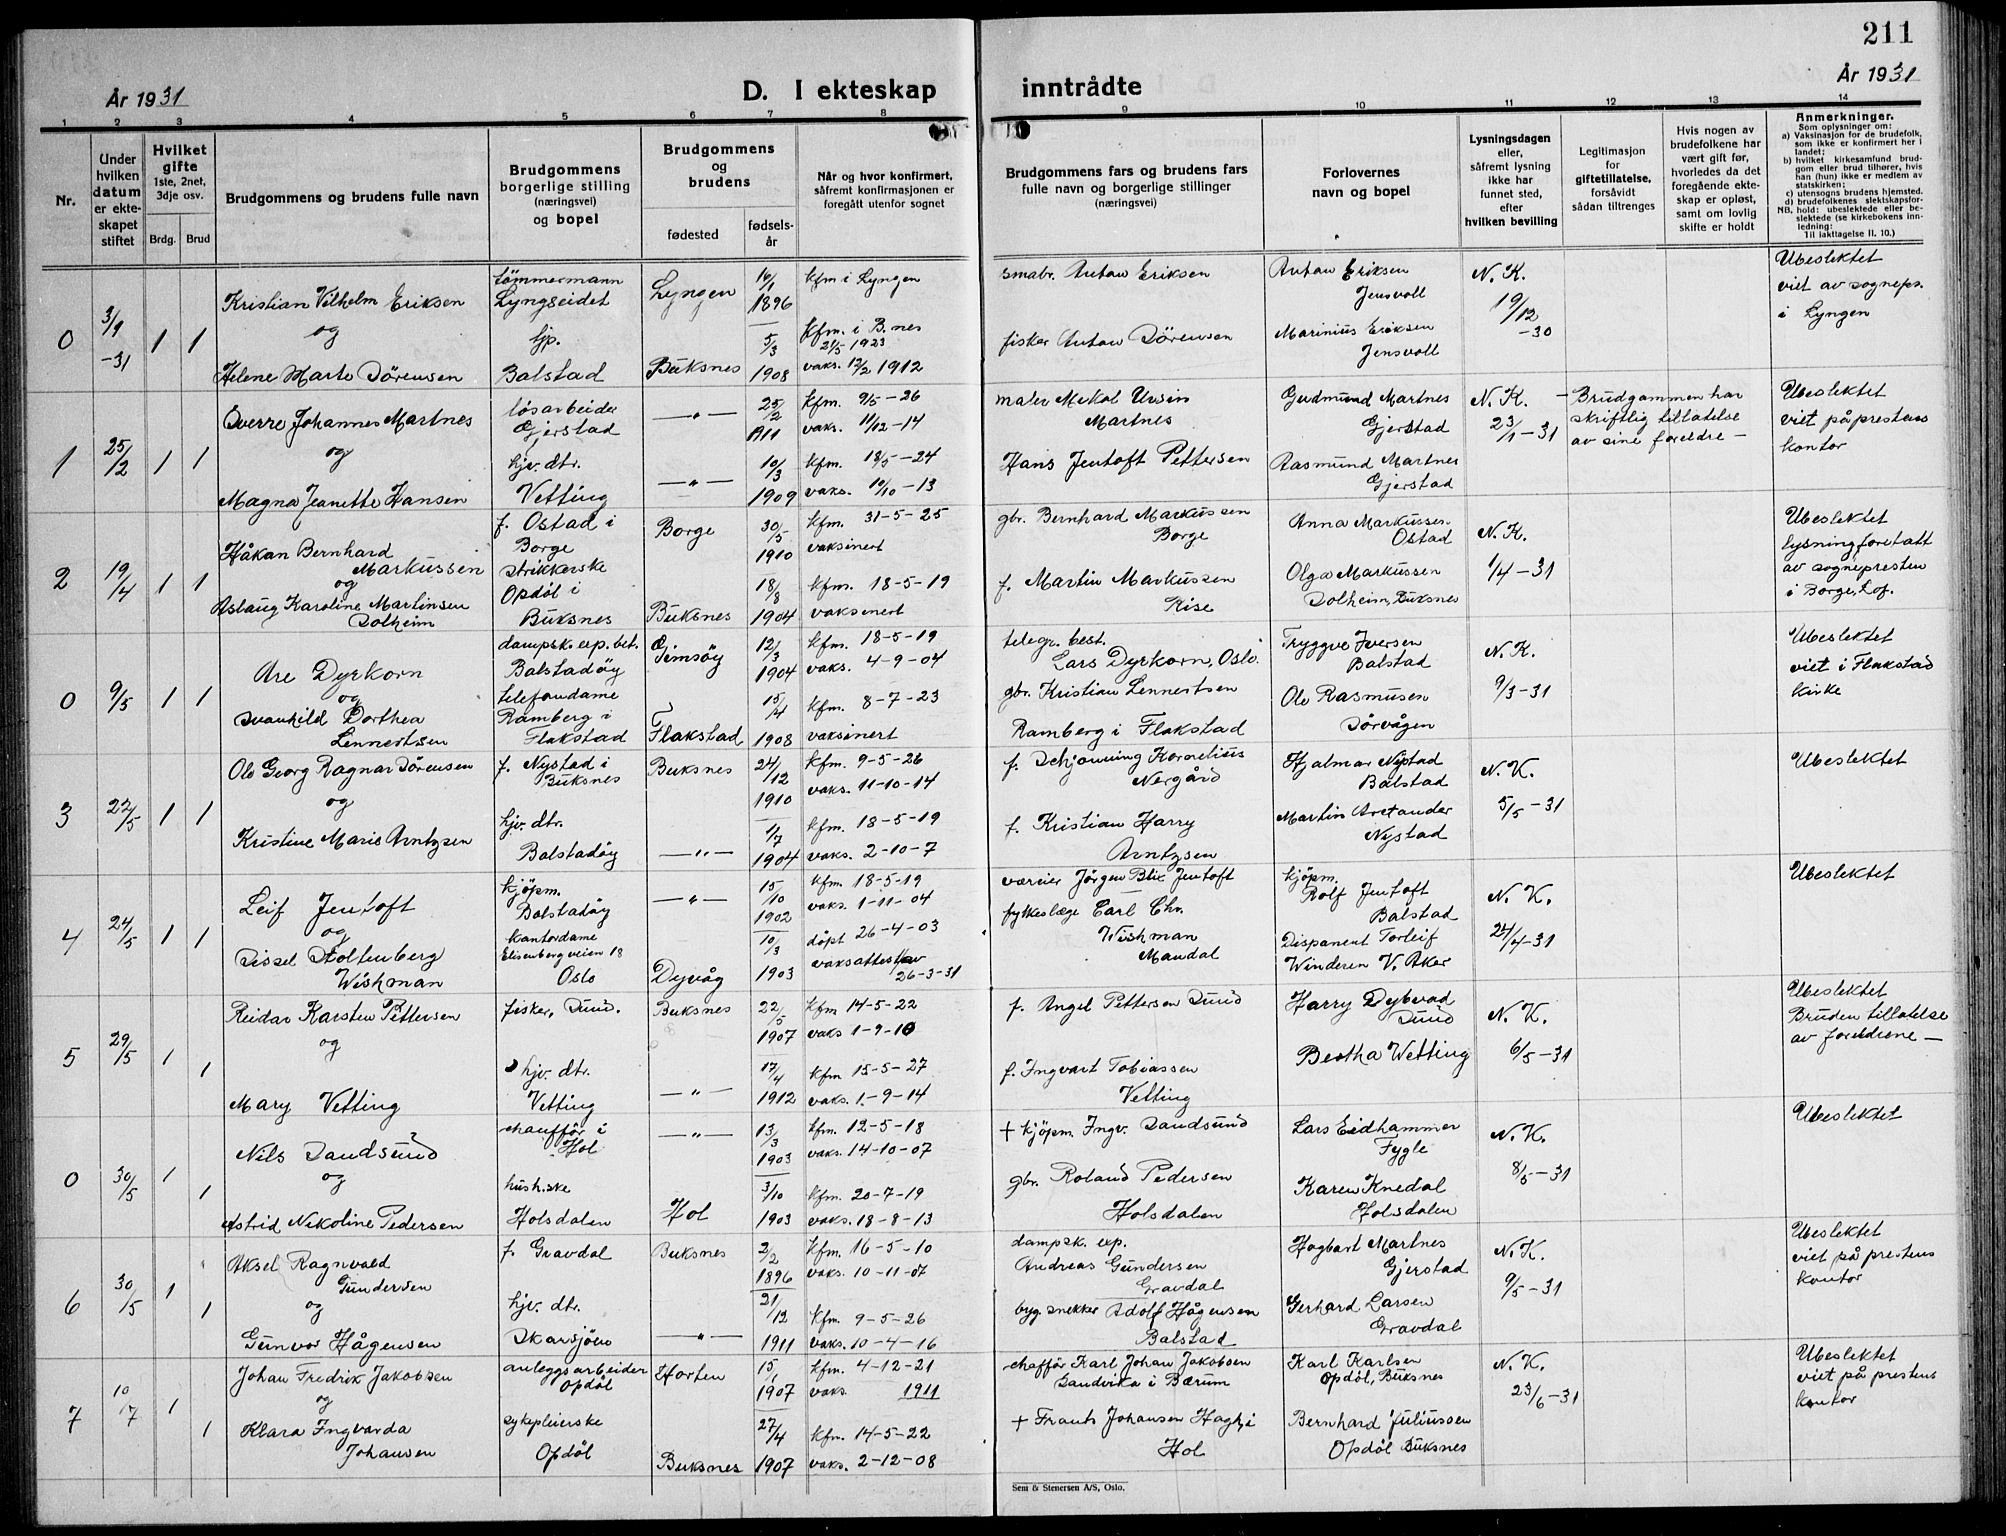 211
År 1931
D. I ekteskap inntrådte
År 1931
1 2 3 4 5 6 7 8 9 10 11 12 13 14
Nr.
Under hvilken datum er ekteskapet stiftet
Hvilket gifte 1ste, 2net, 3dje osv.
Brdg. Brud
Brudgommens og brudens fulle navn
Brudgommens borgerlige stilling (næringsvei) og bopel
Brudgommens og brudens
fødested
fødselsår
Når og hvor konfirmert, såfremt konfirmasjonen er foregått utenfor sognet
Brudgommens fars og brudens fars fulle navn og borgerlige stillinger (næringsvei)
Forlovernes navn og bopel
Lysningsdagen eller, såfremt lysning ikke har funnet sted, efter hvilken bevilling
Legitimasjon for giftetillatelse, forsåvidt sådan tiltrenges
Hvis nogen av brudefolkene har vært gift før, hvorledes da det foregående ekteskap er opløst, samt om lovlig skifte er holdt
Anmerkninger.
Som oplysninger om:
a) Vaksinasjon for de brudefolk, som ikke er konfirmert her i landet;
b) hvilket kirkesamfund brudgom eller brud tilhører, hvis han (hun) ikke er medlem av statskirken;
c) utensogns brudens hjemsted.
d) brudefolkenes slektskapsforhold: ubeslektede eller beslektede (se kirkebokens innledning:
NB. Til iakttagelse II. 10.)
0 3/9 -31 1 1
Kristian Vilhelm Eriksen
og
Helene Marte Sörensen
tömmermann
Lyngseidet
hjp.
Balstad
Lyngen
Buksnes
16/1 1896
5/3 1908
kfm i Lyngen
kfm. i B.nes
21/5 1923
vaks. 12/2 1912
småbr. Anton Eriksen
fisker Anton Sörensen
Anton Eriksen
Jensvoll
Marinius Eriksen
Jensvoll
N. K.
19/12 -30
Ubeslektet
viet av sognepr.
i Lyngen
1 25/2 1 1
Sverre Johannes Martnes
og
Magna Jeanette Hansen
løsarbeider
Gjerstad
hjv. dtr.
Vetting
— " —
— " —
25/2 1911
10/3 1909
kfm. 9/5 - 26
vaks. 11/12 - 14
kfm. 18/5 - 24
vaks. 10/10 - 13
maler Mekal Ursin
Martnes
Hans Jentoft Pettersen
Gudmund Martnes
Gjerstad
Aasmund Martnes
Gjerstad
N. K. -
23/1 - 31
Brudgommen har
skriftlig tillatelse
av sine foreldre —
Ubeslektet
viet på prestens
kontor
2 19/4 1 1
Håkan Bernhard
Markussen
og
Aslaug Karoline Martinsen
Solheim
f. Ostad i
Borge
strikkerske
Opdöl i
Buksnes
Borge
Buksnes
30/5 1910
18/8 1904
kfm. 31-5-25
vaksinert
kfm. 18-5-19
vaksinert
gbr. Bernhard Markussen
Borge
f. Martin Markussen
Rise
Anna Markussen
Ostad
Olga Markussen
Solheim, Buksnes
N. K.
1/4 - 31
Ubeslektet
lysning foretatt
av sognepresten
i Borge, Lof.
0 9/5 1 1
Are Dyrkorn
og
Svanhild Dorthea
Lennertsen
dampsk. exp. bet.
Balstadöy
telefondame
Ramberg i
Flakstad
Gimsöy
Flakstad
12/3 1904
15/4 1908
kfm. 18-5-19
vaks. 4-9-04
kfm. 8-7-23
vaksinert
telegr. best.
Lars Dyrkorn, Oslo.
gbr. Kristian Lennertsen
Ramberg i Flakstad
Tryggve Iversen
Balstad
Ole Rasmusen
Sörvågen
N. K.
9/3 - 31
Ubeslektet
viet i Flakstad
kirke
3 22/5 1 1
Ole Georg Ragnar Sörensen
og
Kristine Marie Arntzen
f. Nystad i
Buksnes
hjv. dtr.
Balstadöy
Buksnes
— " —
24/12 1910
1/7 1904
kfm. 9-5-26
vaks. 11-10-14
kfm. 18-5-19
vaks. 2-10-7
f. Schjønning Kornelius
Nergård
f. Kristian Harry
Arntzen
Hjalmar Nystad
Balstad
Martin Aretander
Nystad
N. K.
5/5 - 31
Ubeslektet
4 24/5 1 1
Leif Jentoft
og
Sissel Stoltenberg
Wishman
kjöpm.
Balstadöy
kontordame
Elisenberg veien 18
Oslo
— " —
Dyvåg
15/10 1902
10/3 1903
kfm 18-5-19
vaks. 1-11-04
döpt 26-4-03
vaksattest av
26-3-31
væreier Jörgen Blix Jentoft
fylkeslæge Carl Chr.
Wishman
Mandal
kjöpm.
Rolf Jentoft
Balstad
Disponent Torleif
Winderen V. Aker
N. K.
24/4 - 31
Ubeslektet
5 29/5 1 1
Reidar Karsten Pettersen
og
Mary Vetting
fisker, Sund.
hjv. dtr.
Vetting
Buksnes
— " —
22/5 1907
17/4 1912
kfm 14-5-22
vaks 1-9-10
kfm 15-5-27
vaks. 1-9-14
f. Angel Pettersen Sund
f. Ingvart Tobiassen
Vetting
Harry Dybvad
Sund
Beotha Wetting
N. K.
6/5 - 31
Ubeslektet
Bruden tillatelse
av foreldrene —
0 30/5 1 1
Nils Sandsund
og
Astrid Nikoline Pedersen
chaufför i
Hol
hush.ske
Holsdalen
— " —
Hol
13/3 1903
3/10 1903
kfm. 12-5-18
vaks. 14-10-07
kfm. 20-7-19
vaks. 18-8-13
+ kjöpm. Ingv. Sandsund
gbr. Roland Pedersen
Holsdalen
Lars Eidhammer
Fygle
Karen Knedal
Holsdalen
N. K.
8/5 - 31
Ubeslektet
6 30/5 1 1
Aksel Ragnvald
Gundersen
og
Gunvor Hågensen
f. Gravdal
hjv. dtr.
Skarsjöen
Buksnes
— " —
2/2 1896
21/12 1911
kfm. 16-5-10
vaks. 10-11-07
kfm. 9-5-26
vaks. 10-4-16
dampsk. exp.
Andreas Gundersen
Gravdal
byg. snekker Adolf Hågensen
Balstad
Hagbart Martnes
Gjerstad
Gerhard Larsen
Gravdal
N. K.
9/5 - 31
Ubeslektet
viet på prestens
kontor
7 10/7 1 1
Johan Fredrik Jakobsen
og
Klara Ingvarda
Johansen
anleggsarbeider
Opdöl
sykepleierske
Opdöl
Horten
Buksnes
15/1 1907
27/4 1907
kfm. 4-12-21
vaks. 1911
kfm. 14-5-22
vaks. 2-12-08
chafför Karl Johan Jakobsen
Sandvika i Bærum
+ Frants Johansen Hag i
Hol
Karl Karlsen
Opdöl, Buksnes
Bernhard Juliussen
Opdöl Buksnes
N. K.
23/6 - 31
Ubeslektet
viet på prestens
kontor
Sem & Stenersen A/S, Oslo.